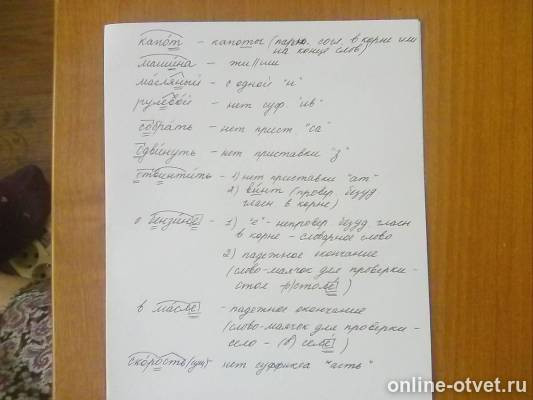 капот - капоты (парн. согл. в корне или
на конце слов)
машина - жи//ши
масляный - с одной "н"
рулевой - нет суф. "ив"
собрать - нет прист. "са"
сдвинуть - нет приставки "з"
отвинтить - 1) нет приставки "ат"
2) винт (провер. безуд
гласн в корне)
о бензине - 1) "е" - непровер безуд гласн
в корне - словарное слово
2) падежное окончание
(слово-маячок для проверки -
стол - столе)
в масле - падежное окончание
(слово-маячок для проверки -
село - (в) селе)
скорость (сущ) - нет суффикса "асть"
online-otvet.ru